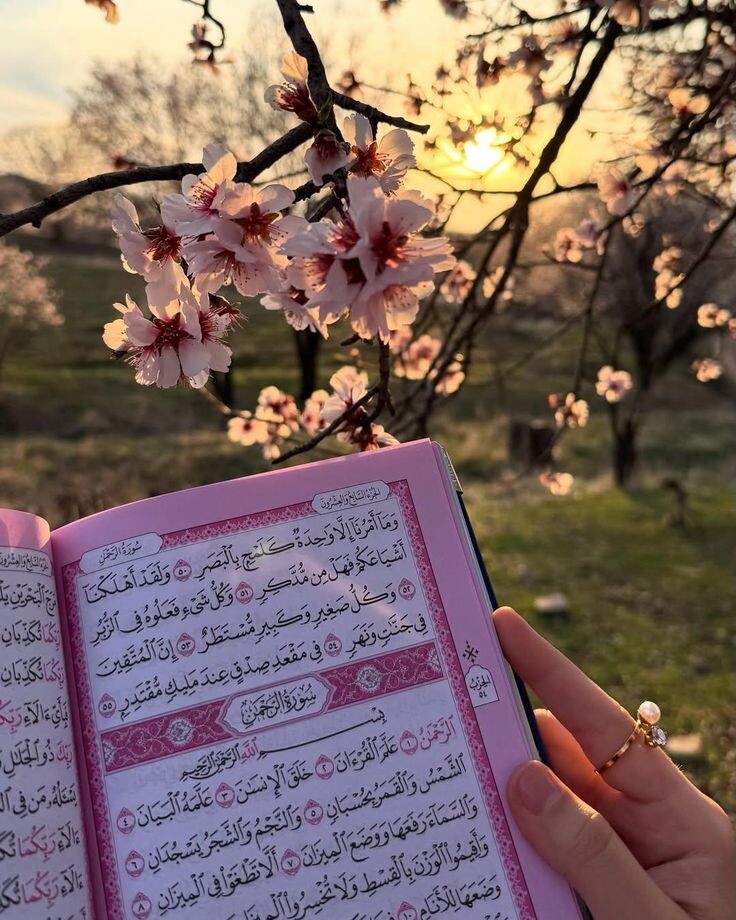 الجُزْءُ السَّابِعُ وَالعِشْرُونَ
سُورَةُ الرَّحْمَٰن
وَمَآ أَمْرُنَآ إِلَّا وَٰحِدَةٌ كَلَمْحٍۭ بِٱلْبَصَرِ ٥٠ وَلَقَدْ أَهْلَكْنَآ
أَشْيَاعَكُمْ فَهَلْ مِن مُّدَّكِرٍ ٥١ وَكُلُّ شَىْءٍ فَعَلُوهُ فِى ٱلزُّبُرِ
٥٢ وَكُلُّ صَغِيرٍ وَكَبِيرٍ مُّسْتَطَرٌ ٥٣ إِنَّ ٱلْمُتَّقِينَ
فِى جَنَّٰتٍ وَنَهَرٍ ٥٤ فِى مَقْعَدِ صِدْقٍ عِندَ مَلِيكٍ مُّقْتَدِرٍۭ ٥٥
سُورَةُ الرَّحْمَٰن
بِسْمِ ٱللَّهِ ٱلرَّحْمَٰنِ ٱلرَّحِيمِ
ٱلرَّحْمَٰنُ ١ عَلَّمَ ٱلْقُرْءَانَ ٢ خَلَقَ ٱلْإِنسَٰنَ ٣ عَلَّمَهُ ٱلْبَيَانَ ٤
ٱلشَّمْسُ وَٱلْقَمَرُ بِحُسْبَانٍ ٥ وَٱلنَّجْمُ وَٱلشَّجَرُ يَسْجُدَانِ ٦
وَٱلسَّمَآءَ رَفَعَهَا وَوَضَعَ ٱلْمِيزَانَ ٧ أَلَّا تَطْغَوْا۟ فِى ٱلْمِيزَانِ ٨
وَأَقِيمُوا۟ ٱلْوَزْنَ بِٱلْقِسْطِ وَلَا تُخْسِرُوا۟ ٱلْمِيزَانَ
وَضَعَهَا لِلْأَنَامِ ١٠
الحِزْبُ ٥٤
الجُزْءُ السَّابِعُ وَالعِشْرُونَ
ٱلْبَحْرَيْنِ
تُكَذِّبَانِ
تُكَذِّبَانِ
ءَالَآءِ رَبِّكُمَا
ذُو ٱلْجَلَٰلِ
مَن فِى
ءَالَآءِ رَبِّكُمَا
رَبِّكُمَا